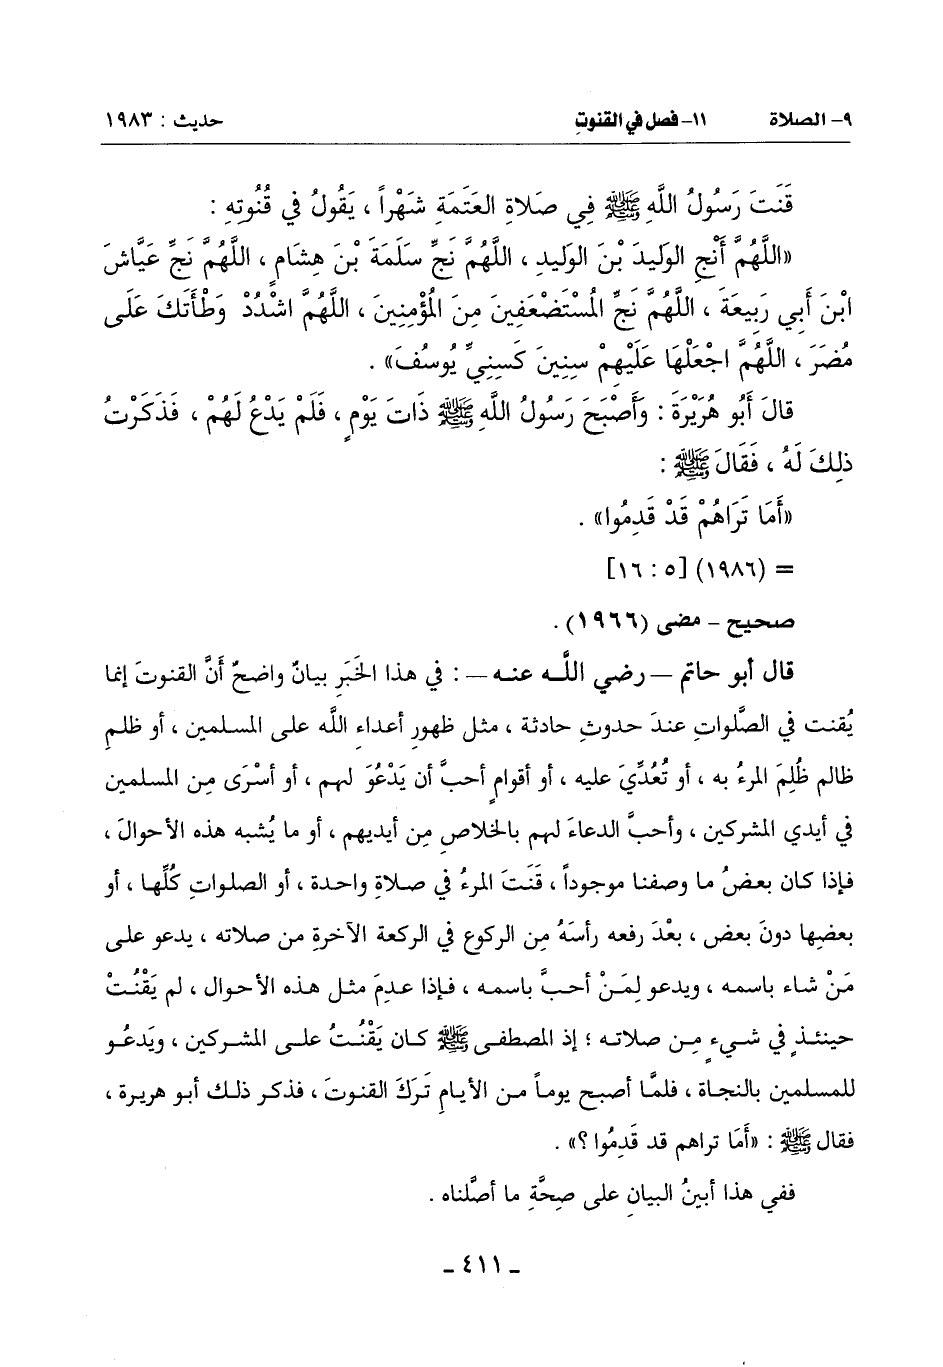 ٩- الصلاة ١١- فصل في القنوتِ حديث : ١٩٨٣
قَنَتَ رَسُولُ اللَّهِ ﷺ فِي صَلاةِ العَتَمَةِ شَهْراً ، يَقُولُ في قُنُوتِهِ :
«اللَّهُمَّ أَنْجِ الوَليدَ بْنَ الوَليدِ ، اللَّهُمَّ نَجِّ سَلَمَةَ بْنَ هِشَامٍ ، اللَّهُمَّ نَجِّ عَيَّاشَ
ابْنَ أَبي رَبِيعَةَ ، اللَّهُمَّ نَجِّ المُسْتَضْعَفِينَ مِنَ المُؤْمِنِينَ ، اللَّهُمَّ اشْدُدْ وَطْأَتَكَ عَلَى
مُضَرَ ، اللَّهُمَّ اجْعَلْهَا عَلَيْهِمْ سِنِينَ كَسِنِيِّ يُوسُفَ» .
قالَ أَبُو هُرَيْرَةَ : وَأَصْبَحَ رَسُولُ اللَّهِ ﷺ ذَاتَ يَوْمٍ ، فَلَمْ يَدْعُ لَهُمْ ، فَذَكَرْتُ
ذلِكَ لَهُ ، فَقَالَ ﷺ :
«أَمَا تَرَاهُمْ قَدْ قَدِمُوا» .
= (١٩٨٦) [٥ : ١٦]
صحيح - مضى (١٩٦٦) .
قال أبو حاتم —رضي اللَّه عنه— : في هذا الخَبَرِ بيانٌ واضحٌ أَنَّ القنوتَ إنما
يُقنت في الصَّلواتِ عندَ حدوثِ حادثة ، مثل ظهورِ أعداءِ اللَّه على المسلمين ، أو ظلمِ
ظالم ظُلِمَ المرءُ به ، أو تُعُدِّيَ عليه ، أو أقوامٍ أحبَّ أن يَدْعُوَ لهم ، أو أسْرَى مِن المسلمين
في أيدي المشركين ، وأحبَّ الدعاءَ لهم بالخلاصِ مِن أيديهم ، أو ما يُشبه هذه الأحوالَ ،
فإذا كان بعضُ ما وصفنا موجوداً ، قَنَتَ المرءُ في صلاةٍ واحدة ، أو الصلواتِ كُلِّها ، أو
بعضِها دونَ بعض ، بعْدَ رفعه رأسَهُ مِن الركوع في الركعة الآخرةِ من صلاته ، يدعو على
مَنْ شاء باسمه ، ويدعو لِمَنْ أحبَّ باسمه ، فإذا عدمَ مثل هذه الأحوال ، لم يَقْنُتْ
حينئذٍ في شيءٍ مِن صلاته ؛ إذ المصطفى ﷺ كان يَقْنُتُ على المشركين ، ويَدعُو
للمسلمين بالنجاة ، فلمَّا أصبح يوماً من الأيامِ تَركَ القنوتَ ، فذكر ذلك أبو هريرة ،
فقال ﷺ : «أَمَا تراهم قد قَدِمُوا ؟» .
ففي هذا أبينُ البيانِ على صِحَّةِ ما أصَّلناه .
- ٤١١ -